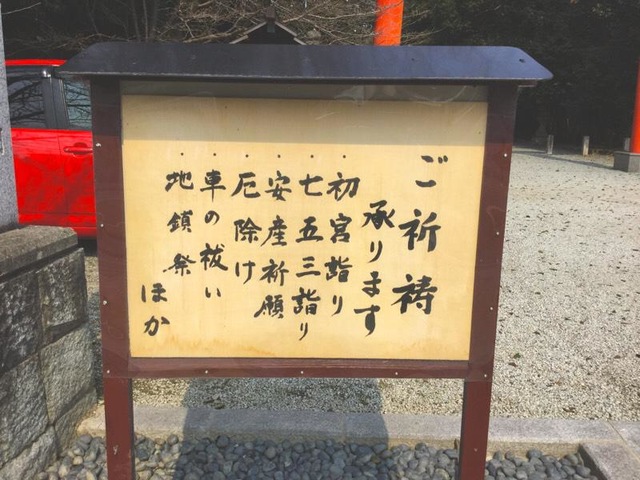 ご祈祷
承ります
・初宮詣り
・七五三詣り
・安産祈願
・厄除け
・車の祓い
・地鎮祭
ほか